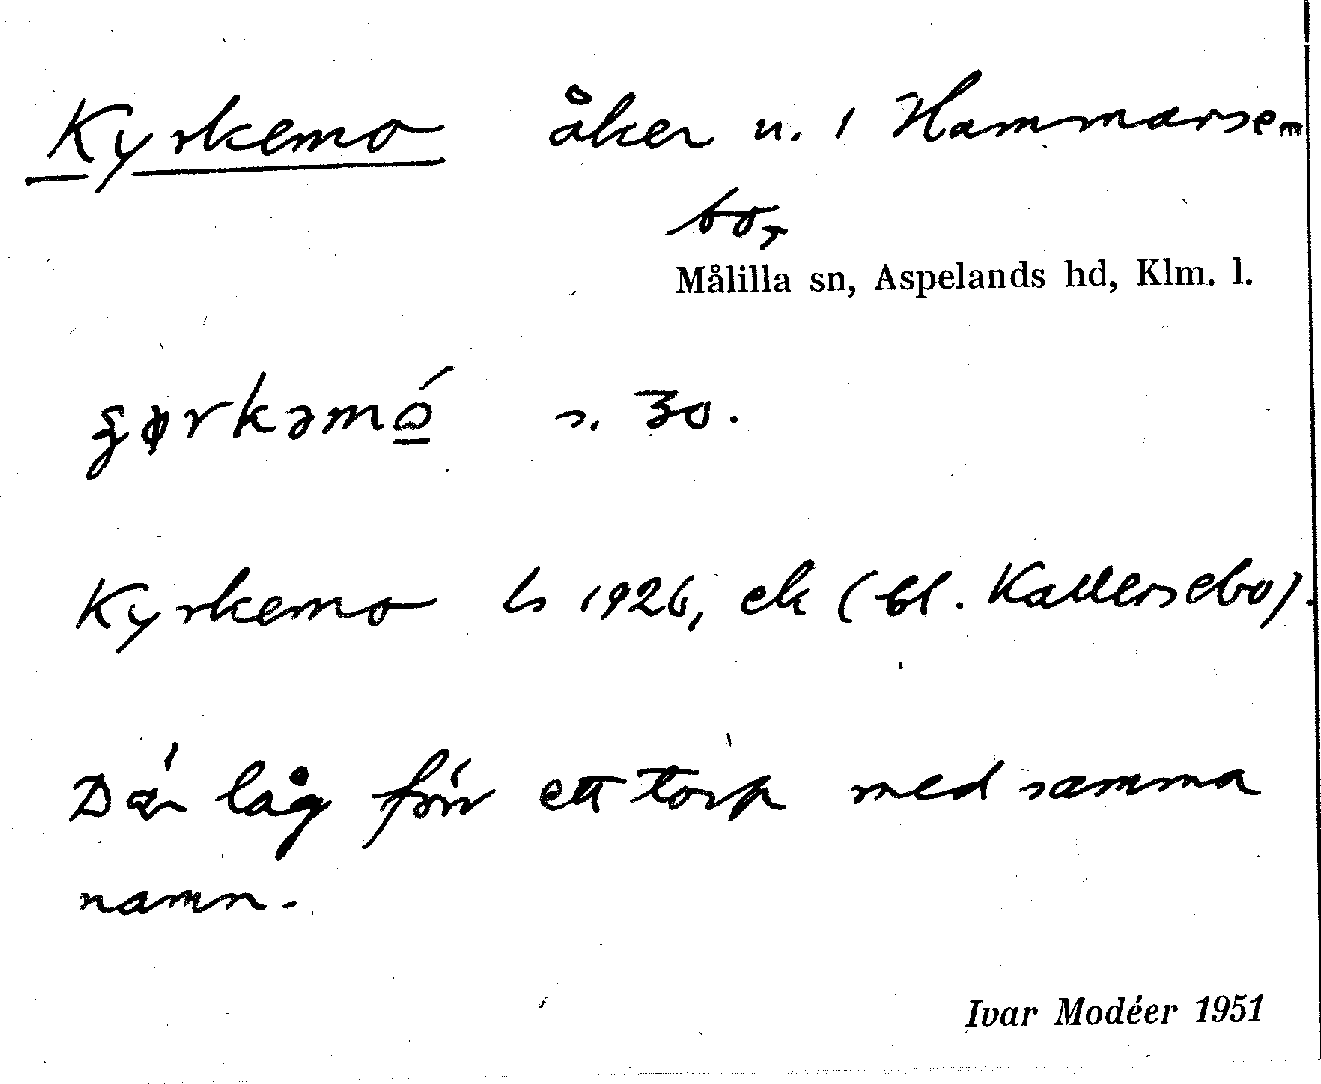 Kyrkemo åker n. 1 Hammarse-
bo,
Målilla sn, Aspelands hd, Klm. l.
s. 30.
Kyrkemo ls 1926, ek (bl. Kallersebo).
Där låg förr ett torp med samma
namn.
Ivar Modéer 1951